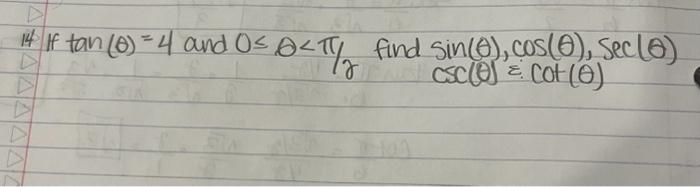 14 If tan(θ)=4 and 0≤ θ<π/2 find sin(θ), cos(θ), sec(θ)
csc(θ) & cot(θ)